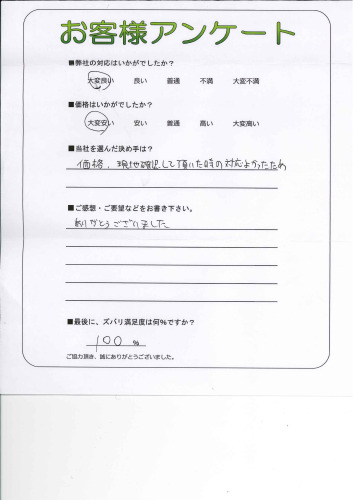 お客様アンケート
■弊社の対応はいかがでしたか？
大変良い 良い 普通 不満 大変不満
■価格はいかがでしたか？
大変安い 安い 普通 高い 大変高い
■当社を選んだ決め手は？
価格、現地確認して頂いた時の対応よかったため
■ご感想・ご要望などをお書き下さい。
ありがとうございました
■最後に、ズバリ満足度は何％ですか？
100 %
ご協力頂き、誠にありがとうございました。